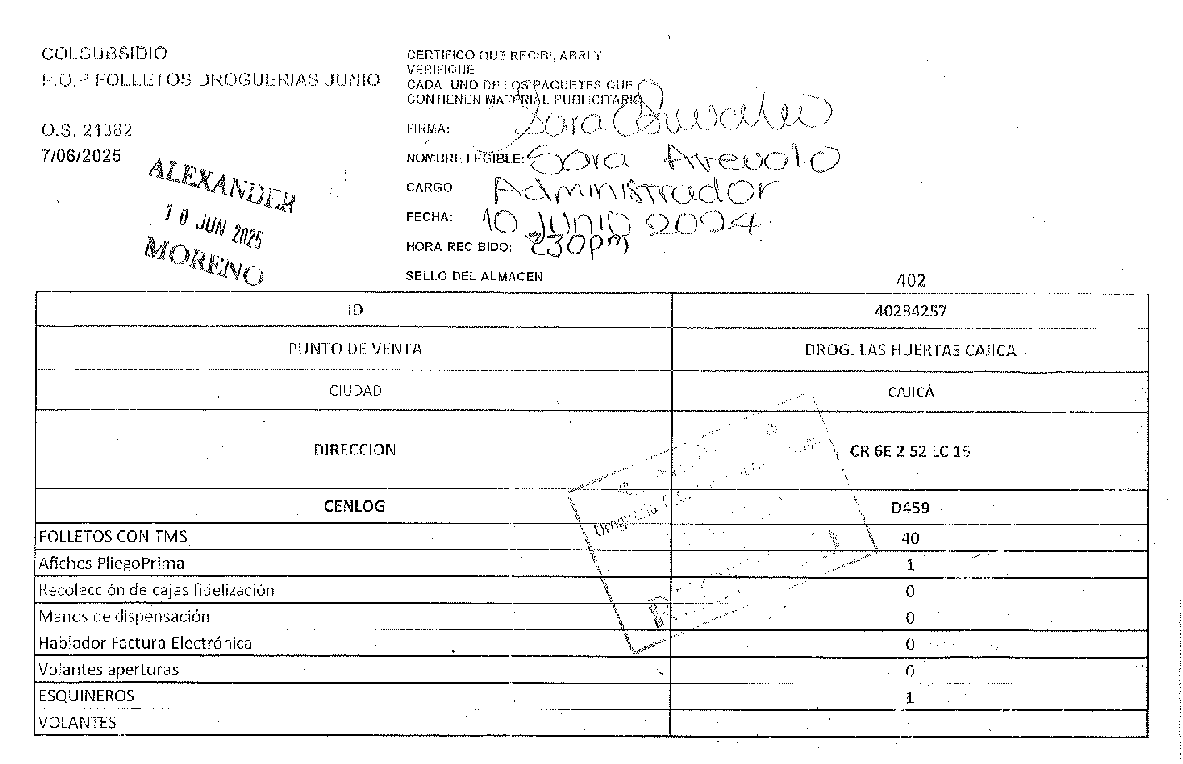 COLSUBSIDIO
P.O.P FOLLETOS DROGUERIAS JUNIO
O.S. 21362
7/06/2025
ALEXANDER
10 JUN 2025
MORENO
CERTIFICO QUE RECIBI, ABRI Y
VERIFIQUE
CADA UNO DE LOS PAQUETES QUE
CONTIENEN MATERIAL PUBLICITARIO
FIRMA: Sara
NOMBRE LEGIBLE: Sara Arevalo
CARGO Administrador
FECHA: 10 JUNIO 2024
HORA RECIBIDO: 230pm
SELLO DEL ALMACEN
402
ID 40284257
PUNTO DE VENTA DROG. LAS HUERTAS CAJICA
CIUDAD CAJICÁ
DIRECCION CR 6E 2 52 LC 16
CENLOG D459
FOLLETOS CON TMS 40
Afiches PliegoPrima 1
Recolección de cajas fidelización 0
Manos de dispensación 0
Hablador Factura Electrónica 0
Volantes aperturas 0
ESQUINEROS 1
VOLANTES
Droguería